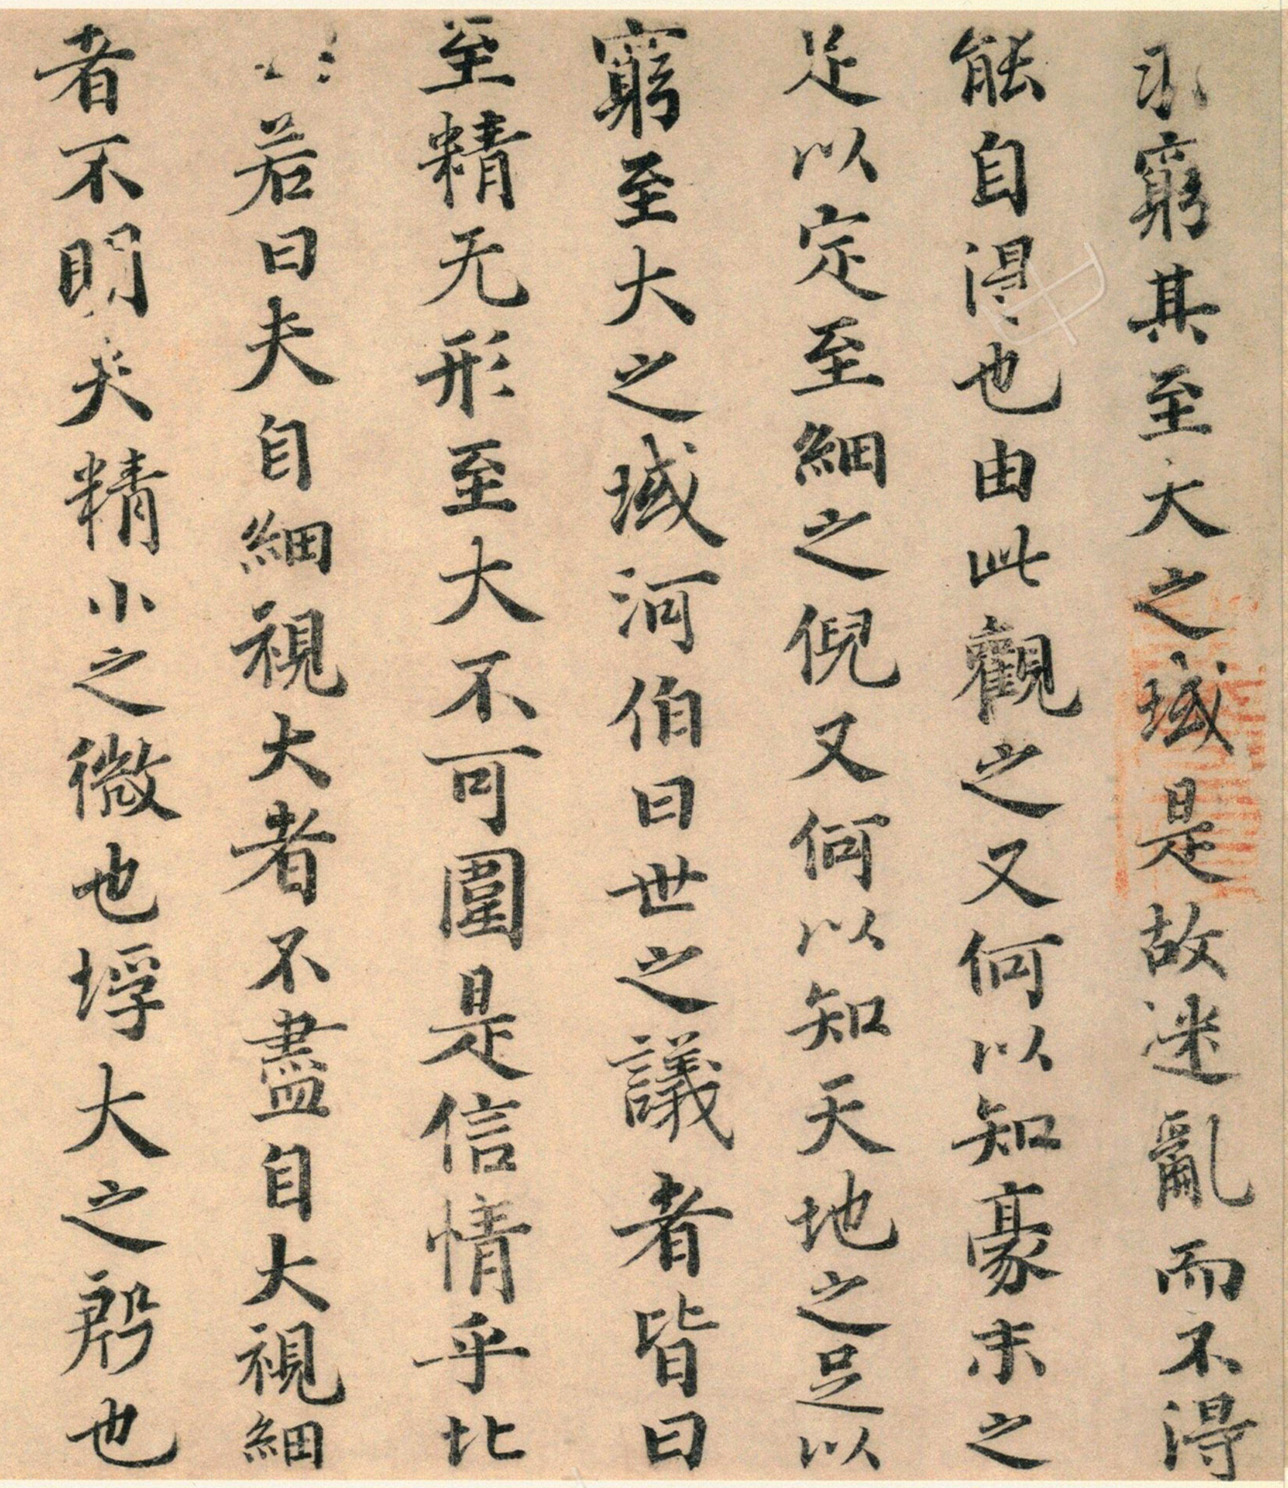 求窮其至大之域是故迷亂而不得
能自得也由此觀之又何以知豪末之
足以定至細之倪又何以知天地之足以
窮至大之域河伯曰世之議者皆曰
至精无形至大不可圍是信情乎北
若曰夫自細視大者不盡自大視細
者不明夫精小之微也垺大之殷也